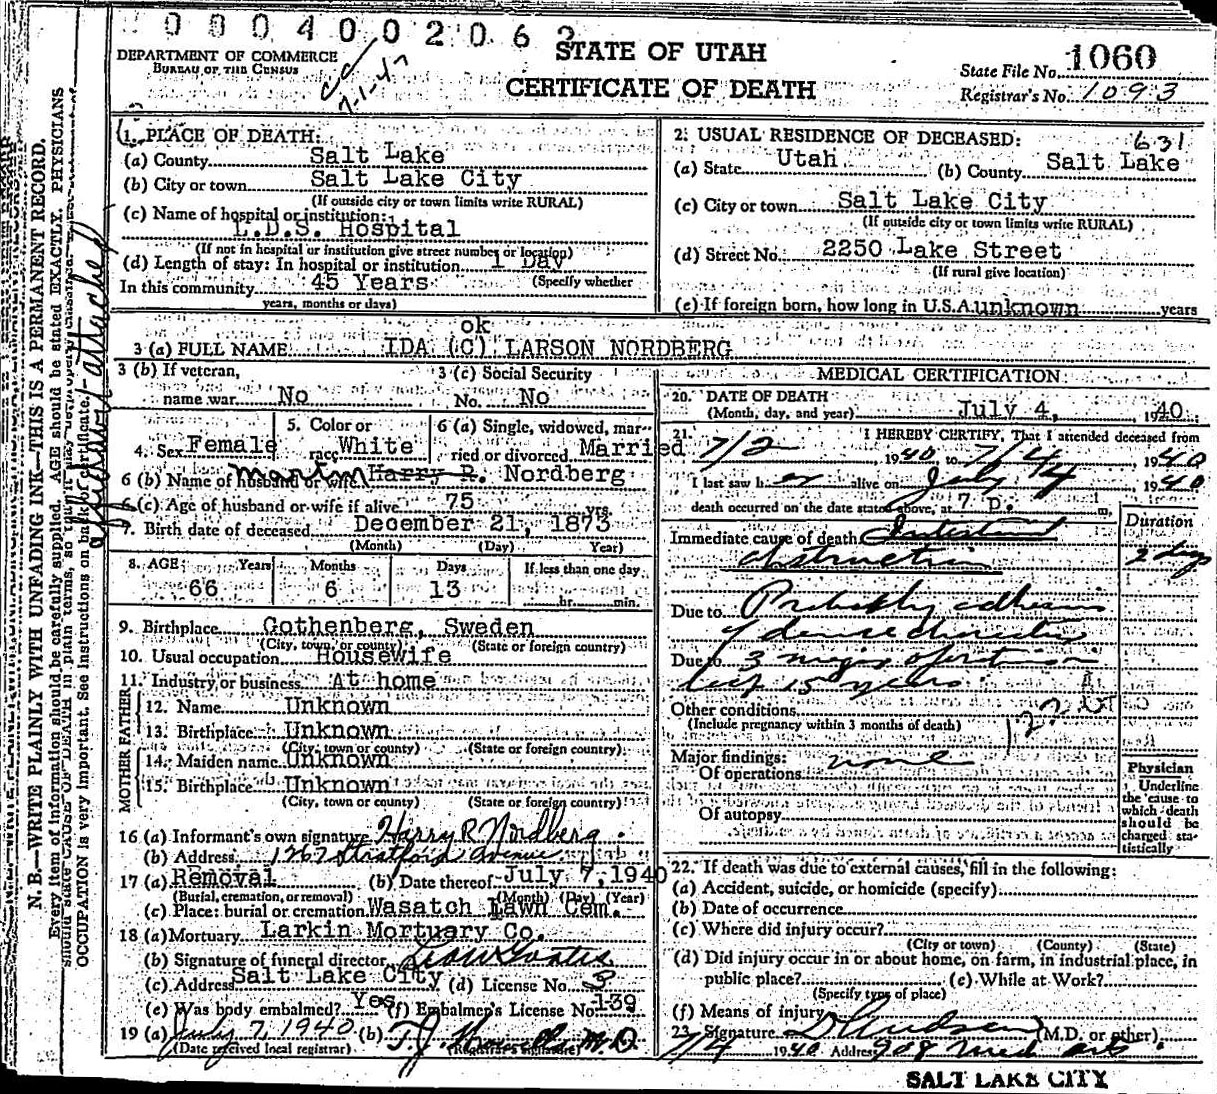 0004002062
STATE OF UTAH
CERTIFICATE OF DEATH
DEPARTMENT OF COMMERCE
BUREAU OF THE CENSUS
7-1-47
State File No. 1060
Registrar's No. 1093
N. B.—WRITE PLAINLY WITH UNFADING INK—THIS IS A PERMANENT RECORD.
Every item of information should be carefully supplied. AGE should be stated EXACTLY. PHYSICIANS
should state CAUSE OF DEATH in plain terms, so that it may
OCCUPATION is very important. See instructions on back of certificate.
affidavit attached
1. PLACE OF DEATH:
(a) County Salt Lake
(b) City or town Salt Lake City
(If outside city or town limits write RURAL)
(c) Name of hospital or institution:
L.D.S. Hospital
(If not in hospital or institution give street number or location)
(d) Length of stay: In hospital or institution 1 Day
(Specify whether
In this community 45 Years
years, months or days)
2. USUAL RESIDENCE OF DECEASED: 631
(a) State Utah (b) County Salt Lake
(c) City or town Salt Lake City
(If outside city or town limits write RURAL)
(d) Street No. 2250 Lake Street
(If rural give location)
(e) If foreign born, how long in U.S.A. unknown years
ok
3 (a) FULL NAME IDA (C) LARSON NORDBERG
3 (b) If veteran, 3 (c) Social Security
name war No No. No
4. Sex Female 5. Color or race White 6 (a) Single, widowed, married or divorced Married
6 (b) Name of husband or wife Martin Harry R. Nordberg
6 (c) Age of husband or wife if alive 75 yrs.
7. Birth date of deceased December 21, 1873
(Month) (Day) Year)
8. AGE: Years Months Days If less than one day
66 6 13 hr. min.
9. Birthplace Gothenberg, Sweden
(City, town, or county) (State or foreign country)
10. Usual occupation Housewife
11. Industry or business At home
FATHER
12. Name Unknown
13. Birthplace Unknown
(City, town or county) (State or foreign country)
MOTHER
14. Maiden name Unknown
15. Birthplace Unknown
(City, town or county) (State or foreign country)
16 (a) Informant's own signature Harry R Nordberg
(b) Address 1267 Stratford Avenue
17 (a) Removal (b) Date thereof July 7, 1940
(Burial, cremation, or removal) (Month) (Day) (Year)
(c) Place: burial or cremation Wasatch Lawn Cem.
18 (a) Mortuary Larkin Mortuary Co.
(b) Signature of funeral director
(c) Address Salt Lake City (d) License No. 3
(e) Was body embalmed? Yes (f) Embalmer's License No. 139
19 (a) July 7, 1940 (b) F.J. M.D
(Date received local registrar) (Registrar's signature)
MEDICAL CERTIFICATION
20. DATE OF DEATH
(Month, day, and year) July 4, 1940
21. I HEREBY CERTIFY, That I attended deceased from
7/2, 1940 to 7/4, 1940
I last saw her alive on July 4, 1940
death occurred on the date stated above, at 7 p. m.
Duration
Immediate cause of death Intestinal
obstruction 2 days
Due to Probably adhesions
of dense character
Due to 3 major operations
last 15 years.
Other conditions
(Include pregnancy within 3 months of death)
Major findings: none
Of operations
Of autopsy
Physician
Underline
the cause to
which death
should be
charged sta-
tistically
22. If death was due to external causes, fill in the following:
(a) Accident, suicide, or homicide (specify)
(b) Date of occurrence
(c) Where did injury occur?
(City or town) (County) (State)
(d) Did injury occur in or about home, on farm, in industrial place, in
public place? (e) While at Work?
(Specify type of place)
(f) Means of injury
23. Signature (M.D. or other)
7/4 1940 Address 908 Med Arts
SALT LAKE CITY